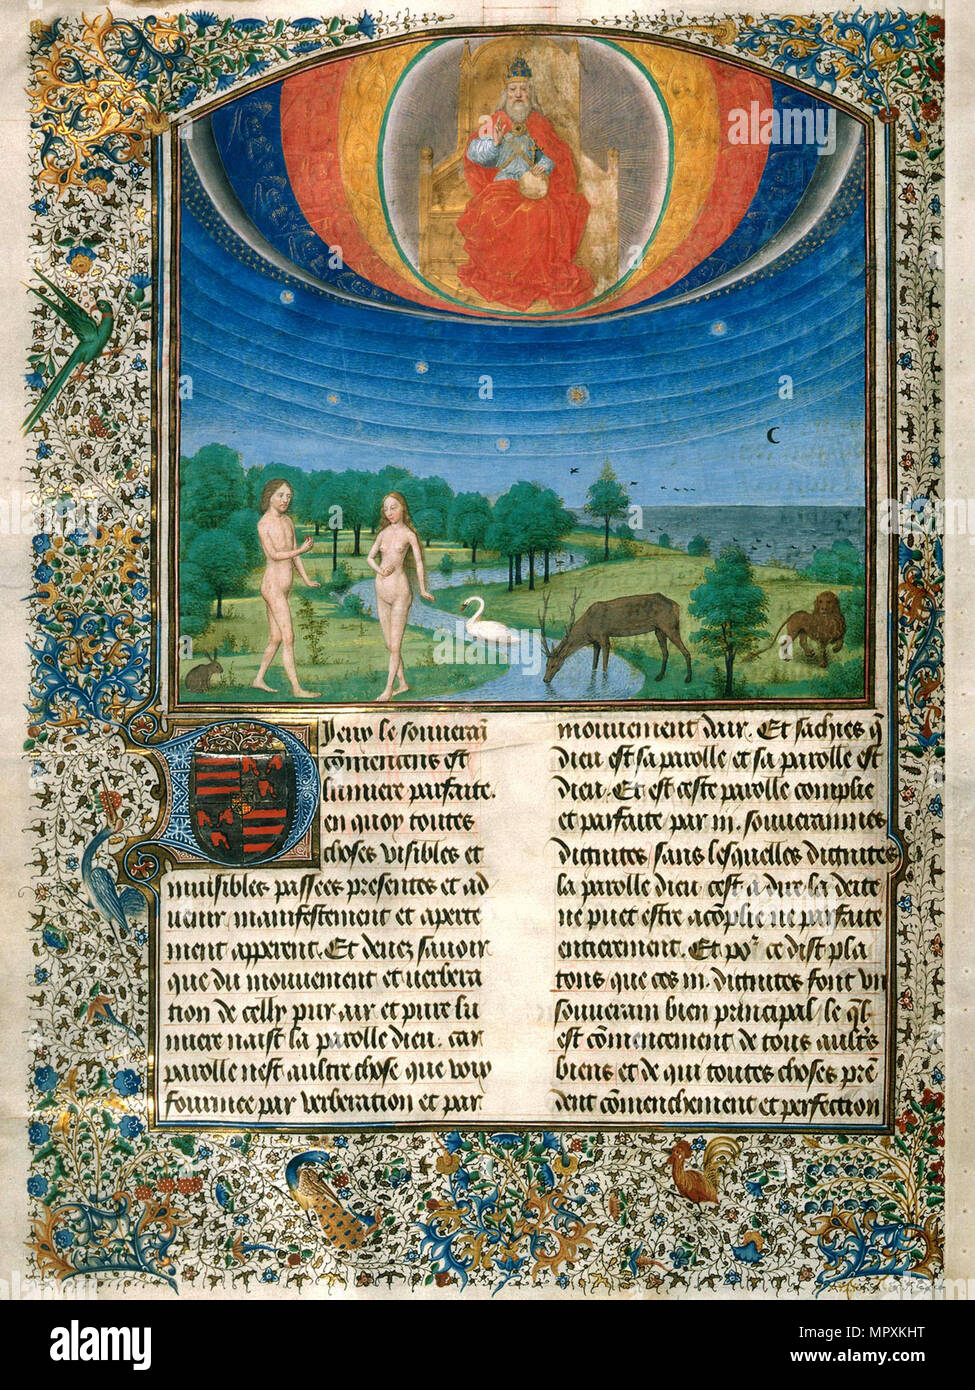 Dieu le souuerai͞
co͞mencens est
lumiere parfaite.
en quoy toutes
choses visibles et
inuisibles passees presentes et ad
uenir manifestement et aperte
ment apperent. Et deuez sauoir
que du mouuement et verbera
tion de celly pur air et pure lu
miere naist la parolle dieu. car
parolle nest aultre chose que voix
fournee par verberation et par
mouuement dair. Et sachies q̄
dieu est sa parolle et sa parolle est
dieu. Et est ceste parolle complie
et parfaite par iii. souuerainnes
dictnites sans lesquelles dictnites
la parolle dieu cest a dire la deite
ne puet estre aco͞plie ne parfaite
entierement. Et po͛ ce dist pla
tons que ces iii. dictnites font vn
souuerain bien principal le q̄l
est co͞mencement de tous ault͛s
biens et de qui toutes choses pre͞
dent co͞menchement et perfection
alamy
Image ID: MPXKHT
www.alamy.com